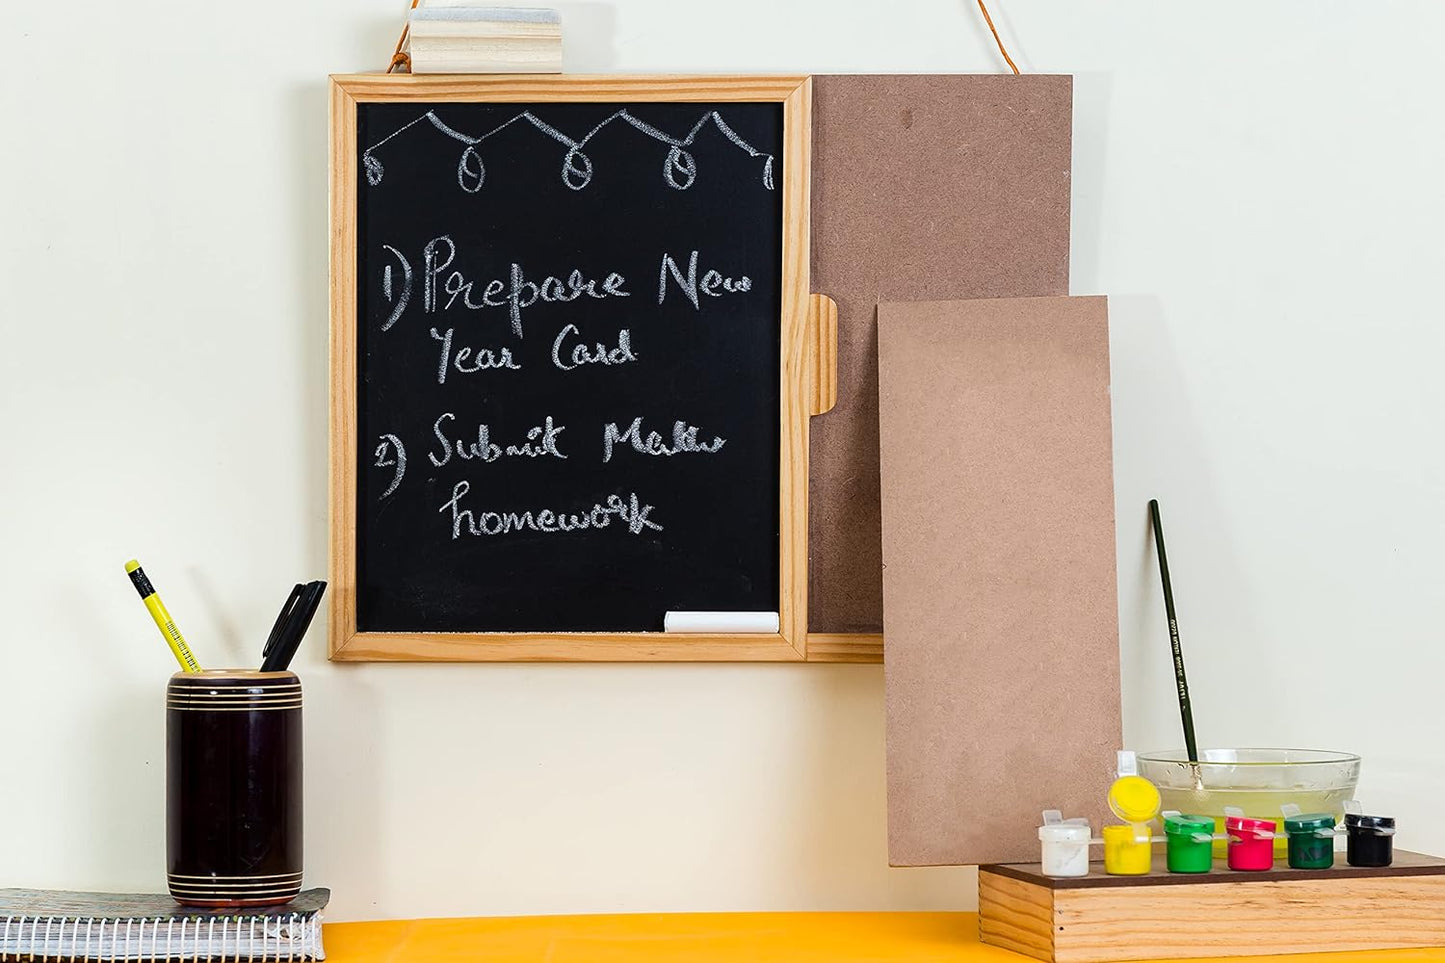 1) Prepare New
Year Card
2) Submit Maths
homework